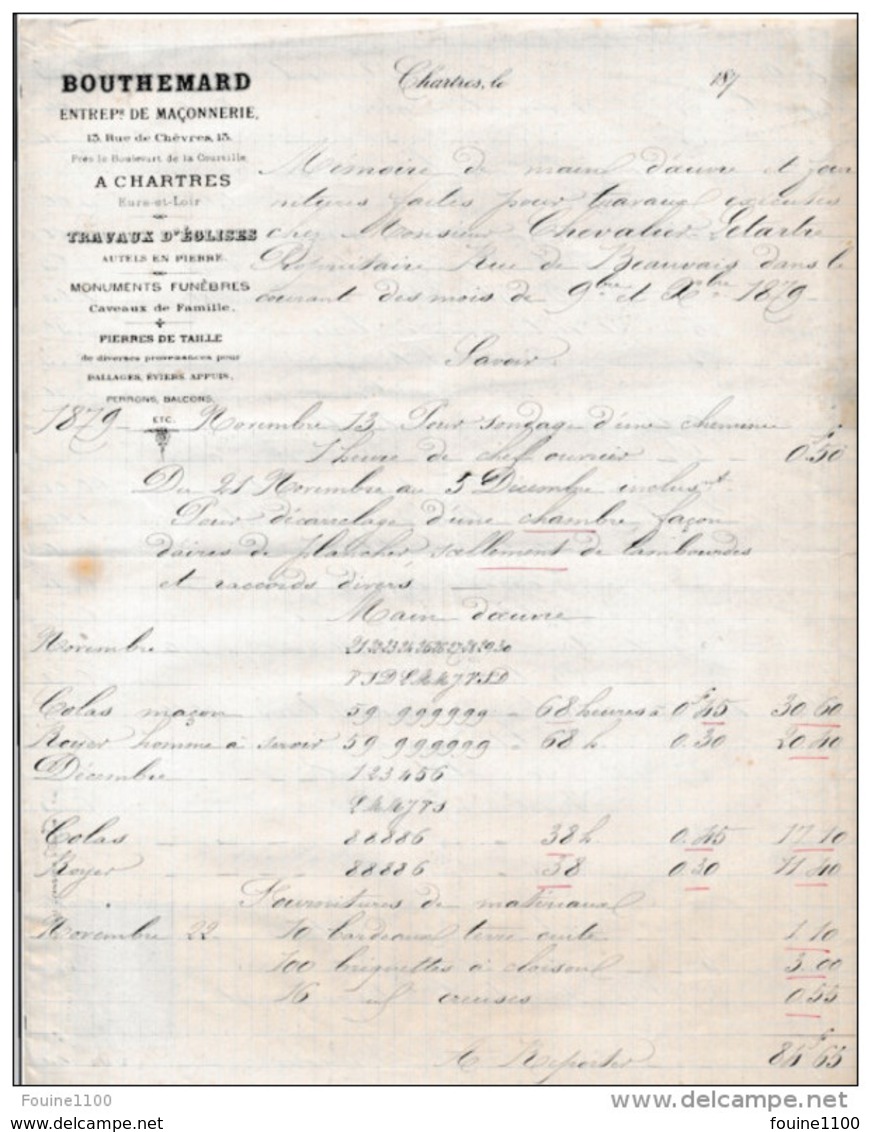 BOUTHEMARD
ENTREPR DE MAÇONNERIE,
15. Rue de Chêvres, 15.
Près le Boulevart de la Courtille,
A CHARTRES
Eure-et-Loir
TRAVAUX D'ÉGLISES
AUTELS EN PIERRE
MONUMENTS FUNÈBRES
Caveaux de Famille.
PIERRES DE TAILLE
de diverses provenances pour
DALLAGES, ÉVIERS, APPUIS,
PERRONS, BALCONS,
ETC.
Chartres, le 187
Mémoire de main d'œuvre et four
nitures faites pour travaux exécutés
chez Monsieur Chevalier Letartre
Propriétaire Rue de Beauvais dans le
courant des mois de 9bre et Xbre 1879
Savoir
1879 Novembre 13 Pour sondage d'une cheminée
1 heure de chef ouvrier 0f50
Du 21 Novembre au 5 Décembre inclusivt
Pour décarrelage d'une chambre, façon
d'aires de plancher, scellement de lambourdes
et raccords divers
Main d'œuvre
Novembre 21 22 23 24 25 26 27 28 29 30
V S D L M M J V S D
Colas maçon 59 999999 68 heures à 0f45 30 60
Royer homme à servir 59 999999 68 h. 0.30 20 40
Décembre 1 2 3 4 5 6
L M M J V S
Colas 88886 38 h 0.45 17 10
Royer 88886 38 0.30 11 40
Fournitures de matériaux
Novembre 22 10 bardeaux terre cuite 1 10
100 briquettes à cloisons 3.00
16 creuses 0.55
A Reporter 84f65
Fouine1100
www.delcampe.net
www.delcampe.net
fouine1100